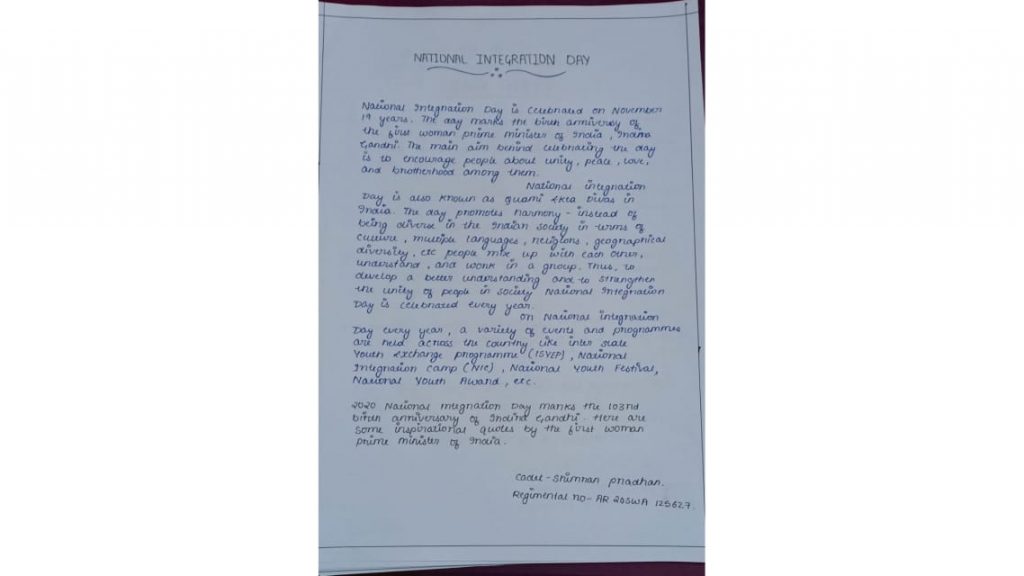 NATIONAL INTEGRATION DAY
National Integration Day is celebrated on November
19 years. The day marks the birth anniversy of
the first woman prime minister of India, Indira
Gandhi. The main aim behind celebrating the day
is to encourage people about unity, peace, love,
and brotherhood among them.
National integration
Day is also known as Quami Ekta Divas in
India. The day promotes harmony - instead of
being diverse in the Indian society in terms of
culture, multiple languages, religions, geographical
diversity, etc people mix up with each other,
understand, and work in a group. Thus, to
develop a better understanding and to strengthen
the unity of people in society National Integration
Day is celebrated every year.
On National integration
Day every year, a variety of events and programmes
are held across the country like inter state
Youth Exchange programme (ISYEP), National
Integration camp (NIC), National Youth Festival,
National Youth Award, etc.
2020 National Integration Day marks the 103nd
birth anniversary of Indira Gandhi. Here are
some inspirational quotes by the first woman
prime minister of India.
Cadet - Shimran pradhan.
Regimental no - AR 20SWA 125627.